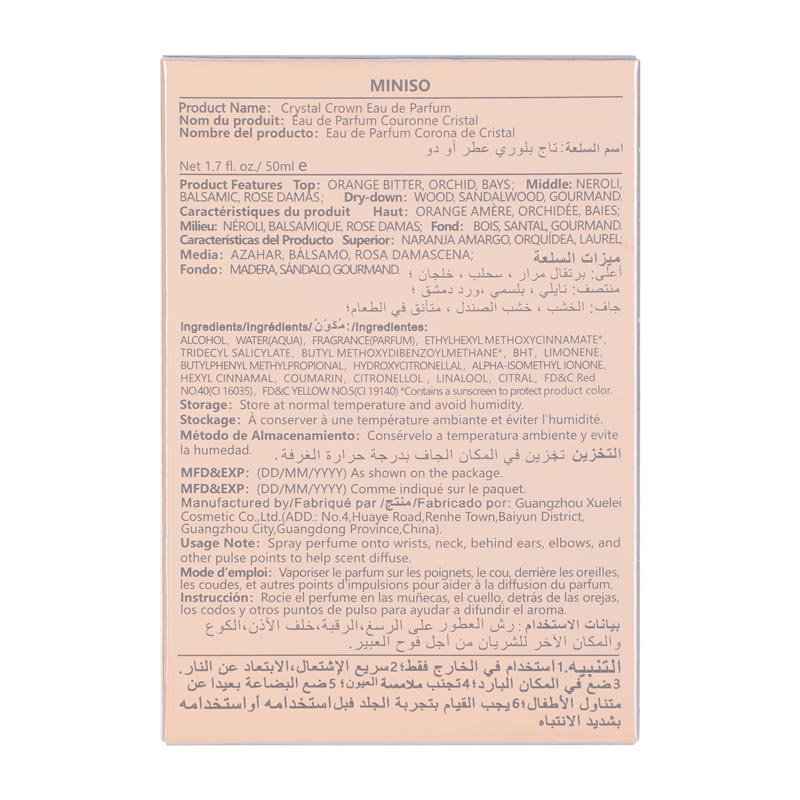 MINISO
Product Name: Crystal Crown Eau de Parfum
Nom du produit: Eau de Parfum Couronne Cristal
Nombre del producto: Eau de Parfum Corona de Cristal
اسم السلعة: تاج بلوري عطر أو دو
Net 1.7 fl. oz./ 50ml ℮
Product Features Top: ORANGE BITTER, ORCHID, BAYS; Middle: NEROLI,
BALSAMIC, ROSE DAMAS; Dry-down: WOOD, SANDALWOOD, GOURMAND.
Caractéristiques du produit Haut: ORANGE AMÈRE, ORCHIDÉE, BAIES;
Milieu: NÉROLI, BALSAMIQUE, ROSE DAMAS; Fond: BOIS, SANTAL, GOURMAND.
Características del Producto Superior: NARANJA AMARGO, ORQUÍDEA, LAUREL;
Media: AZAHAR, BÁLSAMO, ROSA DAMASCENA; ميزات السلعة
Fondo: MADERA, SÁNDALO, GOURMAND. أعلى: برتقال مرار ، سحلب ، خلجان ؛
منتصف: نايلي ، بلسمي ،ورد دمشق ؛
جاف: الخشب ، خشب الصندل ، متأنق في الطعام؛
Ingredients/Ingrédients/ مُكَوّنٌ:/Ingredientes:
ALCOHOL, WATER(AQUA), FRAGRANCE(PARFUM), ETHYLHEXYL METHOXYCINNAMATE*,
TRIDECYL SALICYLATE, BUTYL METHOXYDIBENZOYLMETHANE*, BHT, LIMONENE,
BUTYLPHENYL METHYLPROPIONAL, HYDROXYCITRONELLAL, ALPHA-ISOMETHYL IONONE,
HEXYL CINNAMAL, COUMARIN, CITRONELLOL , LINALOOL, CITRAL, FD&C Red
NO.40(CI 16035), FD&C YELLOW NO.5(CI 19140) *Contains a sunscreen to protect product color.
Storage: Store at normal temperature and avoid humidity.
Stockage: À conserver à une température ambiante et éviter l'humidité.
Método de Almacenamiento: Consérvelo a temperatura ambiente y evite
la humedad. التخزين تخزين في المكان الجاف بدرجة حرارة الغرفة.
MFD&EXP: (DD/MM/YYYY) As shown on the package.
MFD&EXP: (DD/MM/YYYY) Comme indiqué sur le paquet.
Manufactured by/Fabriqué par /منتج/Fabricado por: Guangzhou Xuelei
Cosmetic Co.,Ltd.(ADD.: No.4,Huaye Road,Renhe Town,Baiyun District,
Guangzhou City,Guangdong Province,China).
Usage Note: Spray perfume onto wrists, neck, behind ears, elbows, and
other pulse points to help scent diffuse.
Mode d'emploi: Vaporiser le parfum sur les poignets, le cou, derrière les oreilles,
les coudes, et autres points d'impulsions pour aider à la diffusion du parfum.
Instrucción: Rocíe el perfume en las muñecas, el cuello, detrás de las orejas,
los codos y otros puntos de pulso para ayudar a difundir el aroma.
بيانات الاستخدام: رش العطور على الرسغ،الرقبة،خلف الأذن،الكوع
والمكان الآخر للشريان من أجل فوح العبير.
التنبيه.1استخدام في الخارج فقط؛2سريع الإشتعال،الابتعاد عن النار.
3ضع في المكان البارد؛4تجنب ملامسة العيون؛5ضع البضاعة بعيدا عن
متناول الأطفال؛6يجب القيام بتجربة الجلد قبل استخدامه أو استخدامه
بشديد الانتباه